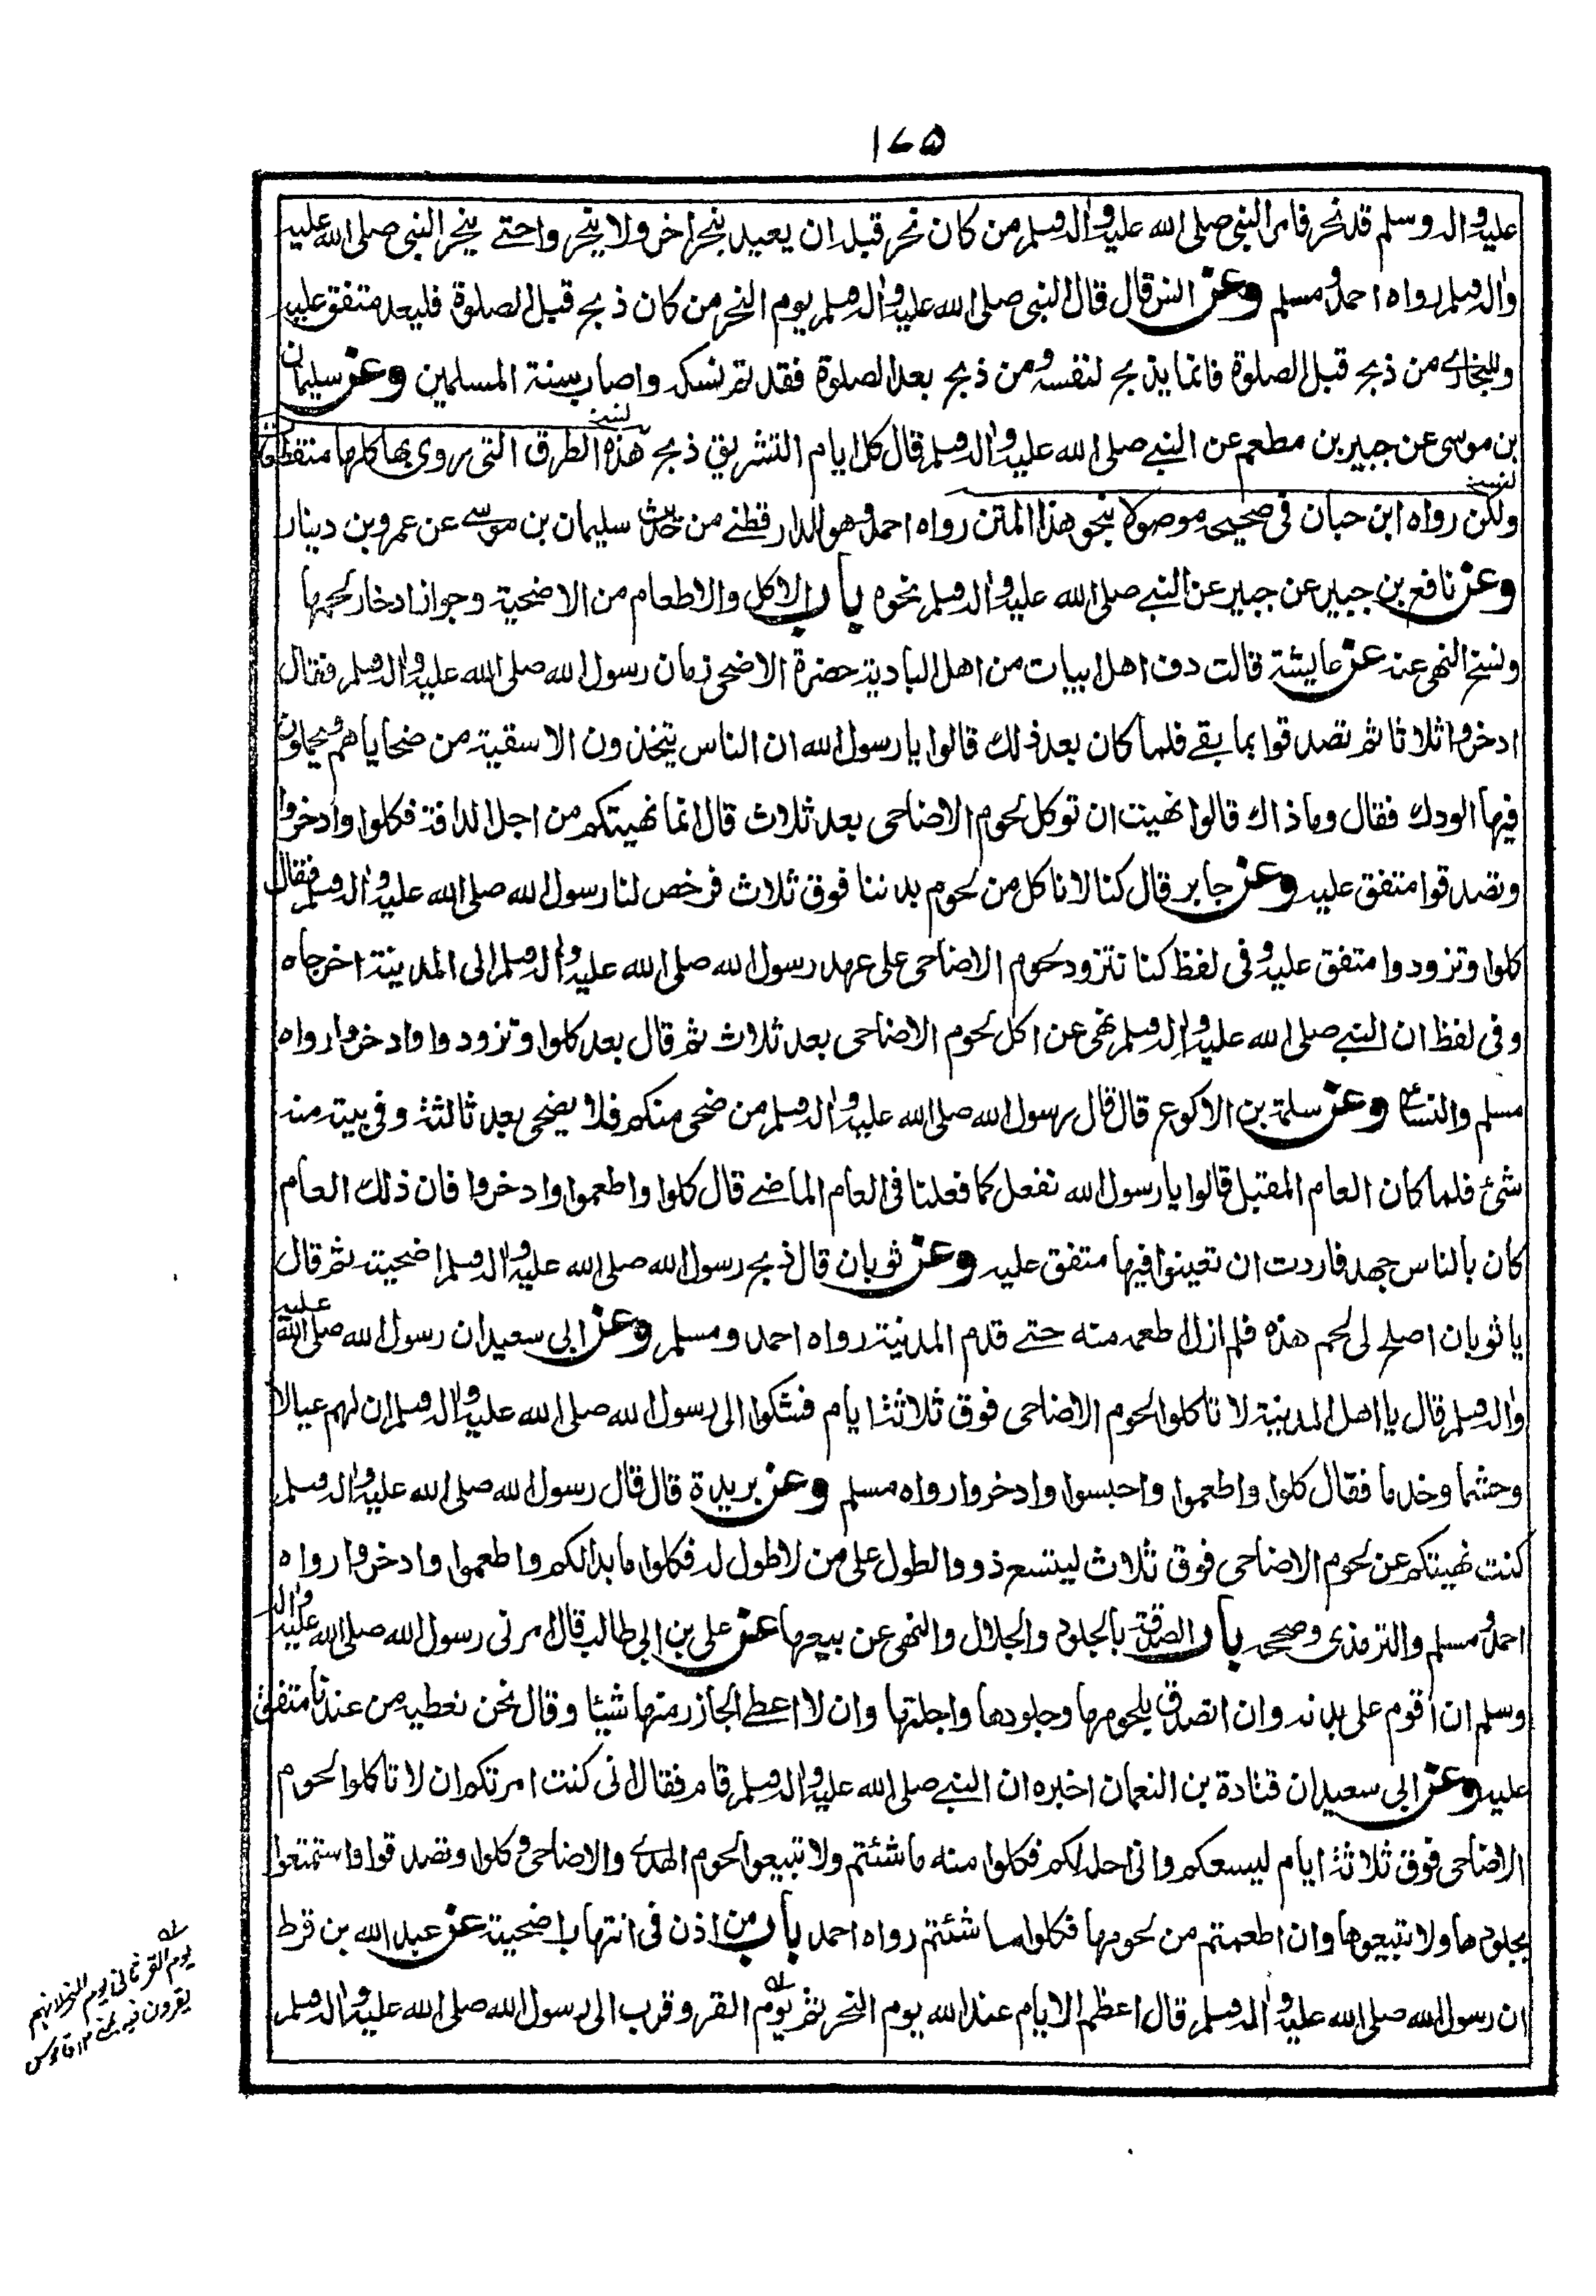 ١٧٥
عليه واله وسلم قد نحر فامر النبي صلى الله عليه واله وسلم من كان نحر قبله ان يعيد بنحر اخر ولا ينحروا حتى ينحر النبي صلى الله عليه
واله وسلم رواه احمد ومسلم وعن انس قال قال النبي صلى الله عليه واله وسلم يوم النحر من كان ذبح قبل الصلوة فليعد متفق عليه
وللبخاري من ذبح قبل الصلوة فانما يذبح لنفسه ومن ذبح بعد الصلوة فقد تم نسكه واصاب سنة المسلمين وعن سليمان
بن موسى عن جبير بن مطعم عن النبي صلى الله عليه واله وسلم قال كل ايام التشريق ذبح هذه الطرق التى يروى بها كلها منقطعة
ولكن رواه ابن حبان فى صحيحه موصولا بنحو هذا المتن رواه احمد وهو للدارقطنى من حديث سليمان بن موسى عن عمرو بن دينار
وعن نافع بن جبير عن جبير عن النبي صلى الله عليه واله وسلم نحوه باب الاكل والاطعام من الاضحية وجواز ادخار لحمها
ونسخ النهى عنه عن عايشة قالت دف اهل ابيات من اهل البادية حضرة الاضحى زمان رسول الله صلى الله عليه واله وسلم فقال
ادخروا ثلاثا ثم تصدقوا بما بقى فلما كان بعد ذلك قالوا يا رسول الله ان الناس يتخذون الاسقية من ضحاياهم ويجملون
فيها الودك فقال وما ذاك قالوا نهيت ان توكل لحوم الاضاحى بعد ثلاث قال انما نهيتكم من اجل الدافة فكلوا وادخروا
وتصدقوا متفق عليه وعن جابر قال كنا لا ناكل من لحوم بدننا فوق ثلاث فرخص لنا رسول الله صلى الله عليه واله وسلم فقال
كلوا وتزودوا متفق عليه وفى لفظ كنا نتزود لحوم الاضاحى على عهد رسول الله صلى الله عليه واله وسلم الى المدينة اخرجاه
وفى لفظ ان النبي صلى الله عليه واله وسلم نهى عن اكل لحوم الاضاحى بعد ثلاث ثم قال بعد كلوا وتزودوا وادخروا رواه
مسلم والنسائى وعن سلمة بن الاكوع قال قال رسول الله صلى الله عليه واله وسلم من ضحى منكم فلا يضحى بعد ثالثة وفى بيته منه
شئ فلما كان العام المقبل قالوا يا رسول الله نفعل كما فعلنا فى العام الماضى قال كلوا واطعموا وادخروا فان ذلك العام
كان بالناس جهد فاردت ان تعينوا فيها متفق عليه وعن ثوبان قال ذبح رسول الله صلى الله عليه واله وسلم اضحيته ثم قال
يا ثوبان اصلح لى لحم هذه فلم ازل اطعمه منه حتى قدم المدينة رواه احمد ومسلم وعن ابى سعيد ان رسول الله صلى الله عليه
واله وسلم قال يا اهل المدينة لا تاكلوا لحوم الاضاحى فوق ثلاثة ايام فشكوا الى رسول الله صلى الله عليه واله وسلم ان لهم عيالا
وحشما وخدما فقال كلوا واطعموا واحبسوا وادخروا رواه مسلم وعن بريدة قال قال رسول الله صلى الله عليه واله وسلم
كنت نهيتكم عن لحوم الاضاحى فوق ثلاث ليتسع ذوو الطول على من لا طول له فكلوا ما بدا لكم واطعموا وادخروا رواه
احمد ومسلم والترمذى وصححه باب الصدقة بالجلود والجلال والنهى عن بيعها عن على بن ابى طالب قال امرنى رسول الله صلى الله عليه واله
وسلم ان اقوم على بدنه وان اتصدق بلحومها وجلودها واجلتها وان لا اعطى الجازر منها شيئا وقال نحن نعطيه من عندنا متفق
عليه وعن ابى سعيد ان قتادة بن النعمان اخبره ان النبي صلى الله عليه واله وسلم قام فقال انى كنت امرتكم ان لا تاكلوا لحوم
الاضاحى فوق ثلاثة ايام ليسعكم وانى احله لكم فكلوا منه ما شئتم ولا تبيعوا لحوم الهدى والاضاحى وكلوا وتصدقوا واستمتعوا
بجلودها ولا تبيعوها وان اطعمتم من لحومها فكلوا ما شئتم رواه احمد باب من اذن فى انتهاب اضحيته عن عبد الله بن قرط
ان رسول الله صلى الله عليه واله وسلم قال اعظم الايام عند الله يوم النحر ثم يوم القر وقرب الى رسول الله صلى الله عليه واله وسلم
يوم القر ثانى يوم النحر لانهم
يقرون فيه بمنى ١٢ قاموس